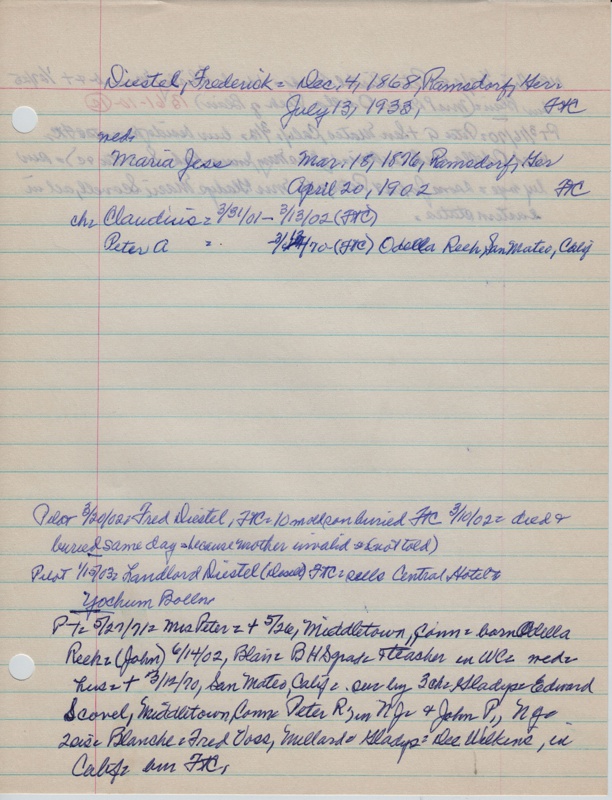 Diestel, Frederick = Dec. 4, 1868, Ramsdorf, Ger
July 13, 1933, FtC
wed:
Maria Jess Mar. 18, 1876, Ramsdorf, Ger
April 20, 1902 FtC
chr Claudius = 3/31/01 - 3/13/02 (FtC)
Peter A = 3/12/70 - (FtC) Odella Reeh, San Mateo, Calif
Pilot 3/20/02 = Fred Diestel, FtC = 10 mo old son buried FtC 3/10/02 = died &
buried same day = because mother invalid & not told)
Pilot 1/15/03 = Landlord Diestel FtC = sells Central Hotel to
Yochum Bollne
P-T = 5/27/71 = Mrs Peter = + 5/26, Middletown, Conn = born Odella
Reeh = (John) 6/14/02, Blair = BHS grad = teacher in WC = wed =
hus = + 3/12/70, San Mateo, Calif = sur by 3 ch = Gladys = Edward
Scovel, Middletown, Conn Peter R, in NJ = & John P,
2 sis = Blanche = Fred Voss, Millard = Gladys = Dee Wilkins, in
Calif = bur FtC,